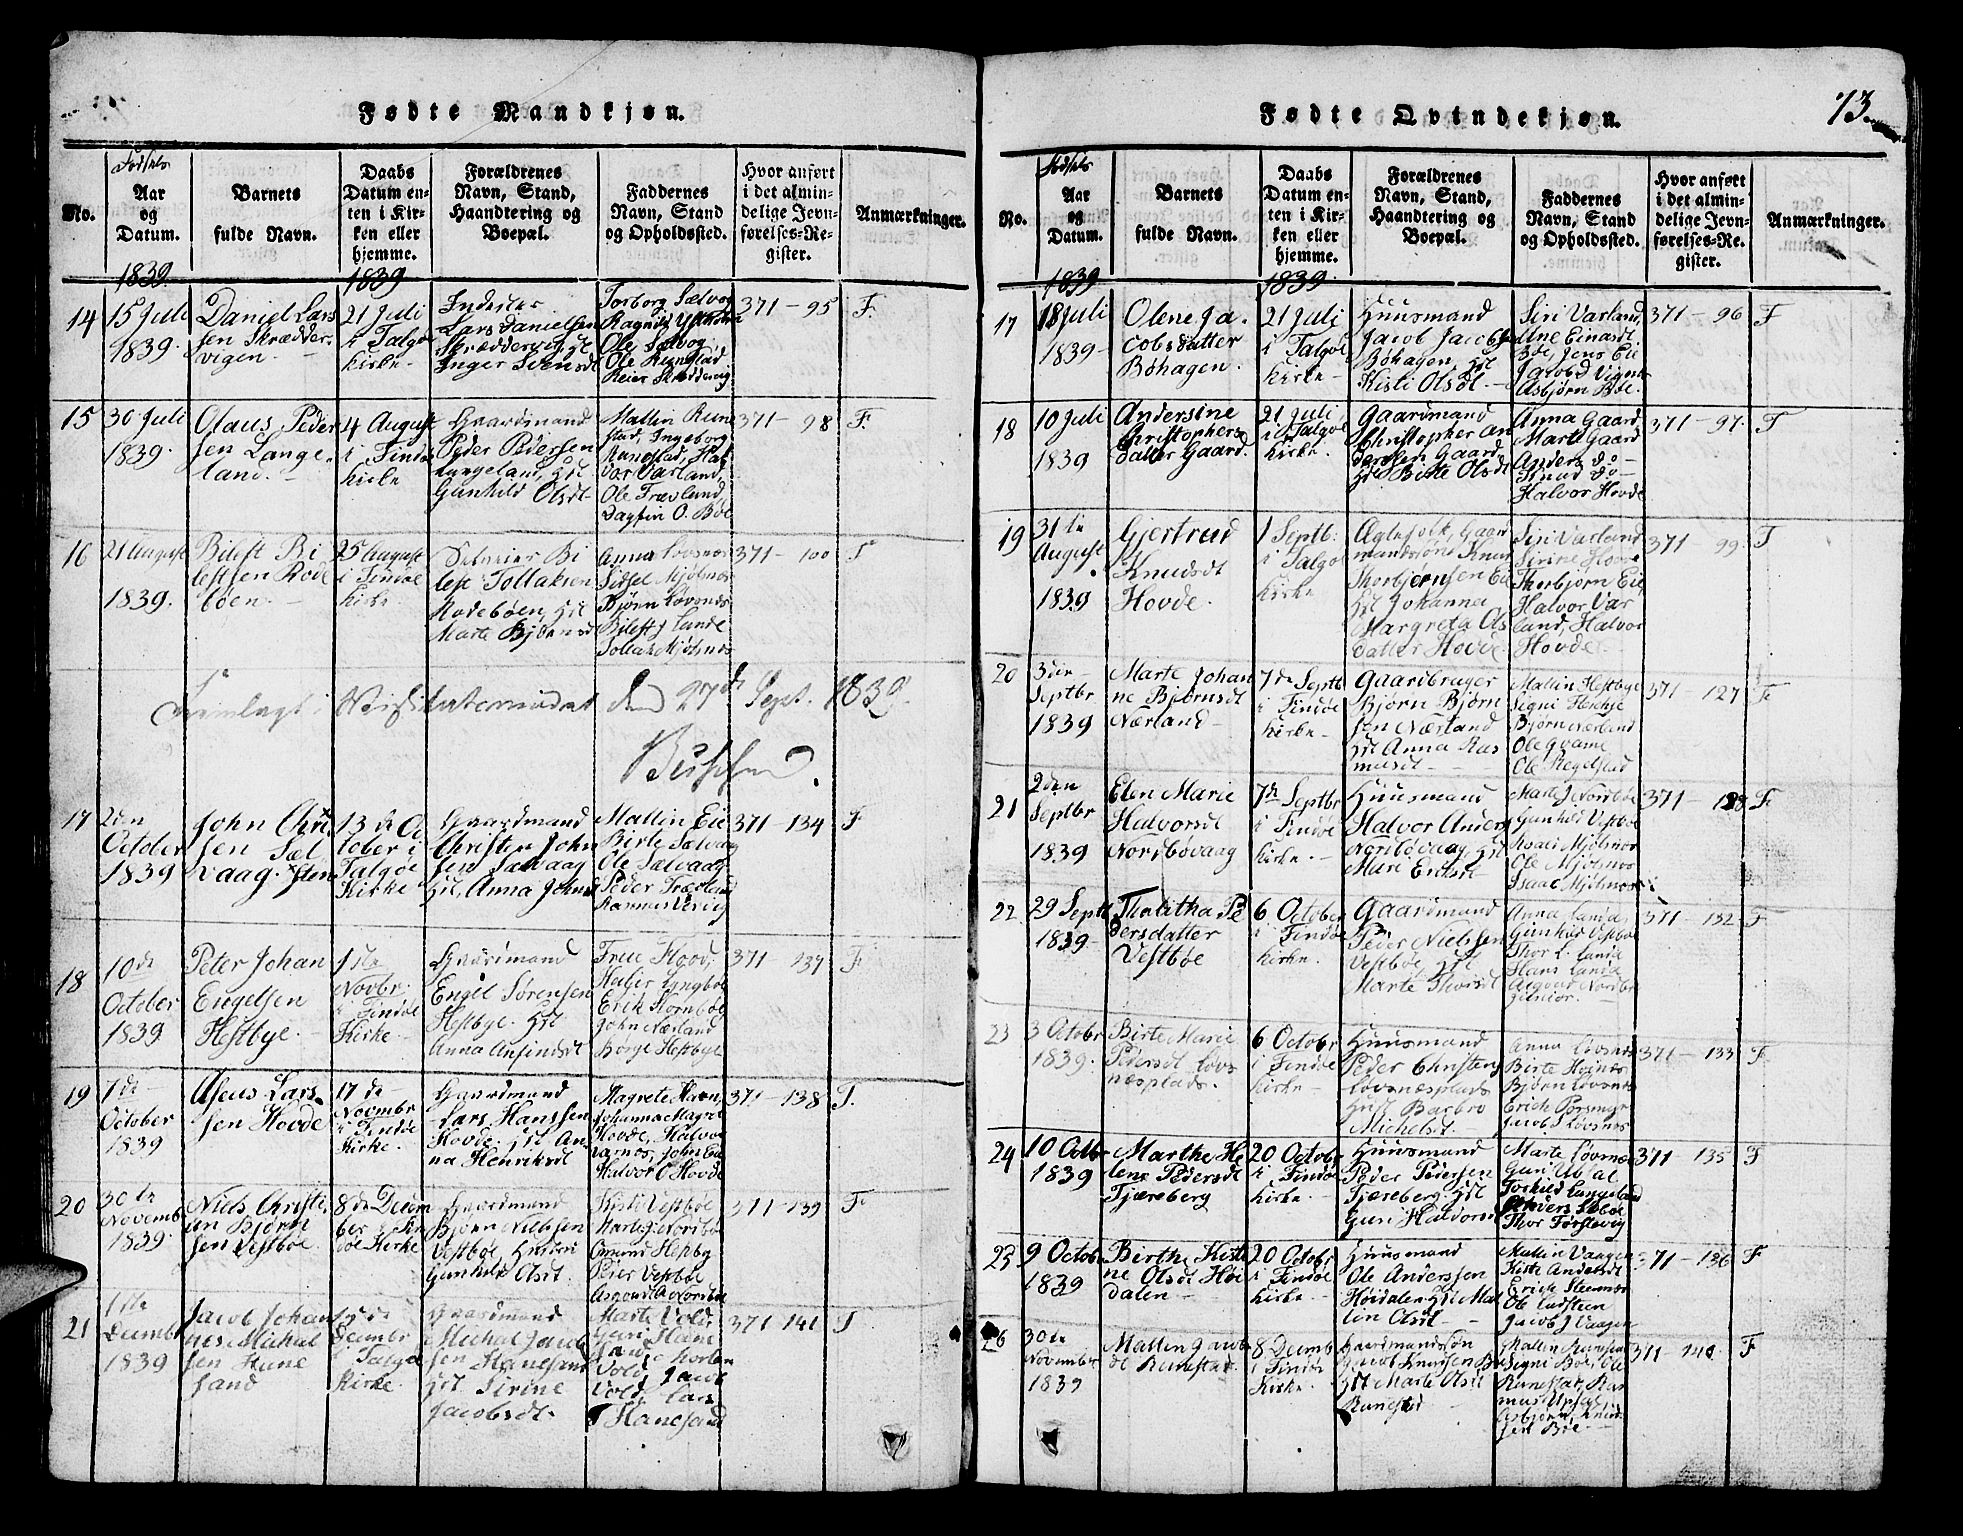 Fødte Mandkjøn.
No.
Fødsels
Aar
og
Datum.
Barnets
fulde Navn.
Daabs
Datum en-
ten i Kir-
ken eller
hjemme.
Forældrenes
Navn, Stand,
Haandtering og
Boepæl.
Faddernes
Navn, Stand
og Opholdssted.
Hvor anført
i det almin-
delige Jevn-
førelses-Re-
gister.
Anmærkninger.
1839
1839
14
15 Juli
1839.
Daniel Lars
sen Skrædder-
vigen.
21 Juli
i Talgø
Kirke
Inderster
Lars Danielsen
Skræddervig, Hst
Inger Svensdt
Torborg Sælvog
Ole Sælvog
Ole Runestad
Reier Skræddervig
371 - 95
F.
15
30 Juli
1839.
Olaus Peder
sen Lange-
land.
4 August
i Findø
Kirke
Gaardmand
Peder Pedersen
Langeland, Hst
Gunhild Olsdt
Mallin Rune
stad, Ingeborg
Runestad, Hal
vor Varland,
Ole Trævland,
Dagfin O. Bøe
371 - 98
F.
16
21 August
1839.
Bilest Bi
lestsen Rode
bøen.
25 August
i Findø
Kirke
Selveier Bi
lest Tollaksen
Rodebøen, Hst
Marte Bjørnsdt
Anna Løvsnæs
Sidsel Mjølsnæs
Bjørn Løvsnæs
Bilest J Lande
Tollak Mjølsnæs
371 - 100
F
Fremlagt i Visitatsmødet den 27de Sept. 1839.
17
2den
October
1839
John Chri
sen Sæl
vaag.
13de Oc
tober i
Talgø
Kirke
Gaardmand
Christen John
sen Sælvaag
Hst, Anna Johnsd
Mallin Eie
Birte Sælvaag
Ole Sælvaag
Peder Trævland
Rasmus Vervig
371 - 134
F
18
10de
October
1839
Peter Johan
Engelsen
Hestbye.
1ste
Novbr.
i Findø
Kirke
Gaardmand
Engel Sørensen
Hestbye. Hst
Anna Ansindsdt
Erik Hornbøe
John Nærland
Børge Hestbye
371 - 137
F.
19
1de
October
1839
Aseus Lars
sen Hovde
17de
Novembr
i Findø
Kirke
Gaardmand
Lars Hanssen
Hovde. Hst An
na Henriksdt
Johanna Magre
Hovde, Halvor
Varnæs, John Eie
Halvor O Hovde
371 - 138
F.
20
30te
Novemb
1839
Niels Christi
an Bjørn
sen Vestbøe.
8de Decem
ber i Fin
døe Kirke
Gaardmand
Bjørn Nielssen
Vestbøe, Hustru
Gunhild Olsdt.
Kisti Vestbøe
Marte J Nordbø
Peder Vestbøe
Asgout A Nordbø
371 - 139
F
21
1ste
Decembr
1839
Jacob Johan
nes Michal
sen Hane
sand
Decembr
i Talgø
Kirke.
Gaardmand
Michal Jacob
sen Hanesand
Hst Sirine
Jacobsdt.
Marte Vold
Guri Hane
Vold, Jacob
Vold, Lars
Hanesand
371 - 141
F
Fødte Qvindekjøn.
73.
No.
Fødsels
Aar
og
Datum.
Barnets
fulde Navn.
Daabs
Datum en-
ten i Kir-
ken eller
hjemme.
Forældrenes
Navn, Stand,
Haandtering og
Boepæl.
Faddernes
Navn, Stand
og Opholdssted.
Hvor anført
i det almin-
delige Jevn-
førelses-Re-
gister.
Anmærkninger.
1839
1839.
17
18 Juli
1839
Olene Ja-
cobsdatter
Bøhagen.
21 Juli
i Talgø
Kirke
Huusmand
Jacob Jacobs
Bøhagen, Hst
Kisti Olsdt.
Siri Varland,
Une Einardt
Bøe, Jens Eie
Jacob J Vigne
Asbjørn Bøe.
371 - 96
F
18
10 Juli
1839
Andersine
Christophers
datter Gaard.
21 Juli
i Talgø
Kirke.
Gaardmand
Christopher An
dersen Gaard
Hst Birte Olsdt
Anna Gaard,
Marte Gaard
Anders do
Knud do
Halvor Hovde
371 - 97
F
19
31te
August
1839
Gjertrud
Knudsdt
Hovde.
1 Septb:
i Talgø
Kirke
Ægtefolk, Gaard
mandssøn Knud
Thorbjørnsen Eie
Hst Johanna
Margreta Ols
datter Hovde.
Siri Varland
Sirine Hovde
Thorbjørn Eie,
Halvor Var
land, Halvor
Hovde.
371 - 99
F
20
3die
Septbr
1839
Marte Johan
ne Bjørnsdt
Nærland
7de Septb
i Findø
Kirke
Gaardbruger
Bjørn Bjørn
sen Nærland
Hst Anna Ras
musdt
Mallin Hestbye
Signi Hestbye
Bjørn Nærland
Ole Qvame
Ole Regelstad
371 - 127
F.
21
2den
Septbr
1839
Elen Marie
Halvorsdt
Nordbøvaag
7de Septbr
i Findø
Kirke.
Huusmand
Halvor Anders
Nordbøvaag Hst
Mari Eriksdt
Marte J Nordbøe
Gunhild Vestbøe
Ole Mjølsnæs
Isaac Mjølsnæs
371 - 128
F.
22
29 Septb
1839
Thalitha Pe
dersdatter
Vestbøe
6 October
i Findø
Kirke.
Gaardmand
Peder Nielssen
Vestbøe Hst
Marte Thorsdt
Anna Landa,
Gunhild Vestbøe
Thor L. Landa
Hans Landa
Asgout Nordbø
junior.
371 - 132
F
23
3 Octobr
1839.
Birte Marie
Pedersdt Løvs
næsplads.
6 Octobr
i Findø
Kirke
Huusmand
Peder Christens
Løvsnæsplads
Hst Barbro
Michelsdt.
Anna Løvsnæs
Birte Høinæs
Bjørn Løvsnæs
Jacob J Løvsnæs
371 - 133
F
24
10 Octbr
1839
Marthe He
lene Pedersdt
Tjæreberg
20 Octobr
i Findø
Kirke
Huusmand
Peder Pedersen
Tjæreberg. Hst
Guri Haldorsdt
Marte Løvsnæs
Guri Ubdal
Torkild Langeland
Thor Førstevig
371 - 135
F
25
9 Octobr
1839
Birthe Kisti
ne Olsdt Høi
dalen
20 Octobr
i Findø
Kirke
Huusmand
Ole Anderssen
Høidalen Hst Mal
lin Olsdt.
Mallin Vaagen
Kisti Andersdt
Erich Steensnæs
Ole Ladsteen
Jacob J Vaagen
371 - 136
F
26
30te
November
1839
Mallin Jacob
dt Runestad.
8 Decemb
i Findø
Kirke.
Gaardmandssøn
Jacob Knudsen Bøe
Hst Marte Olsdt
Runestad
Mallin Runestad
Signi Bøe, Ole
Runestad, Ras
mus Upsal,
Asbjørn Knud
sen Bøe
371 - 140
F